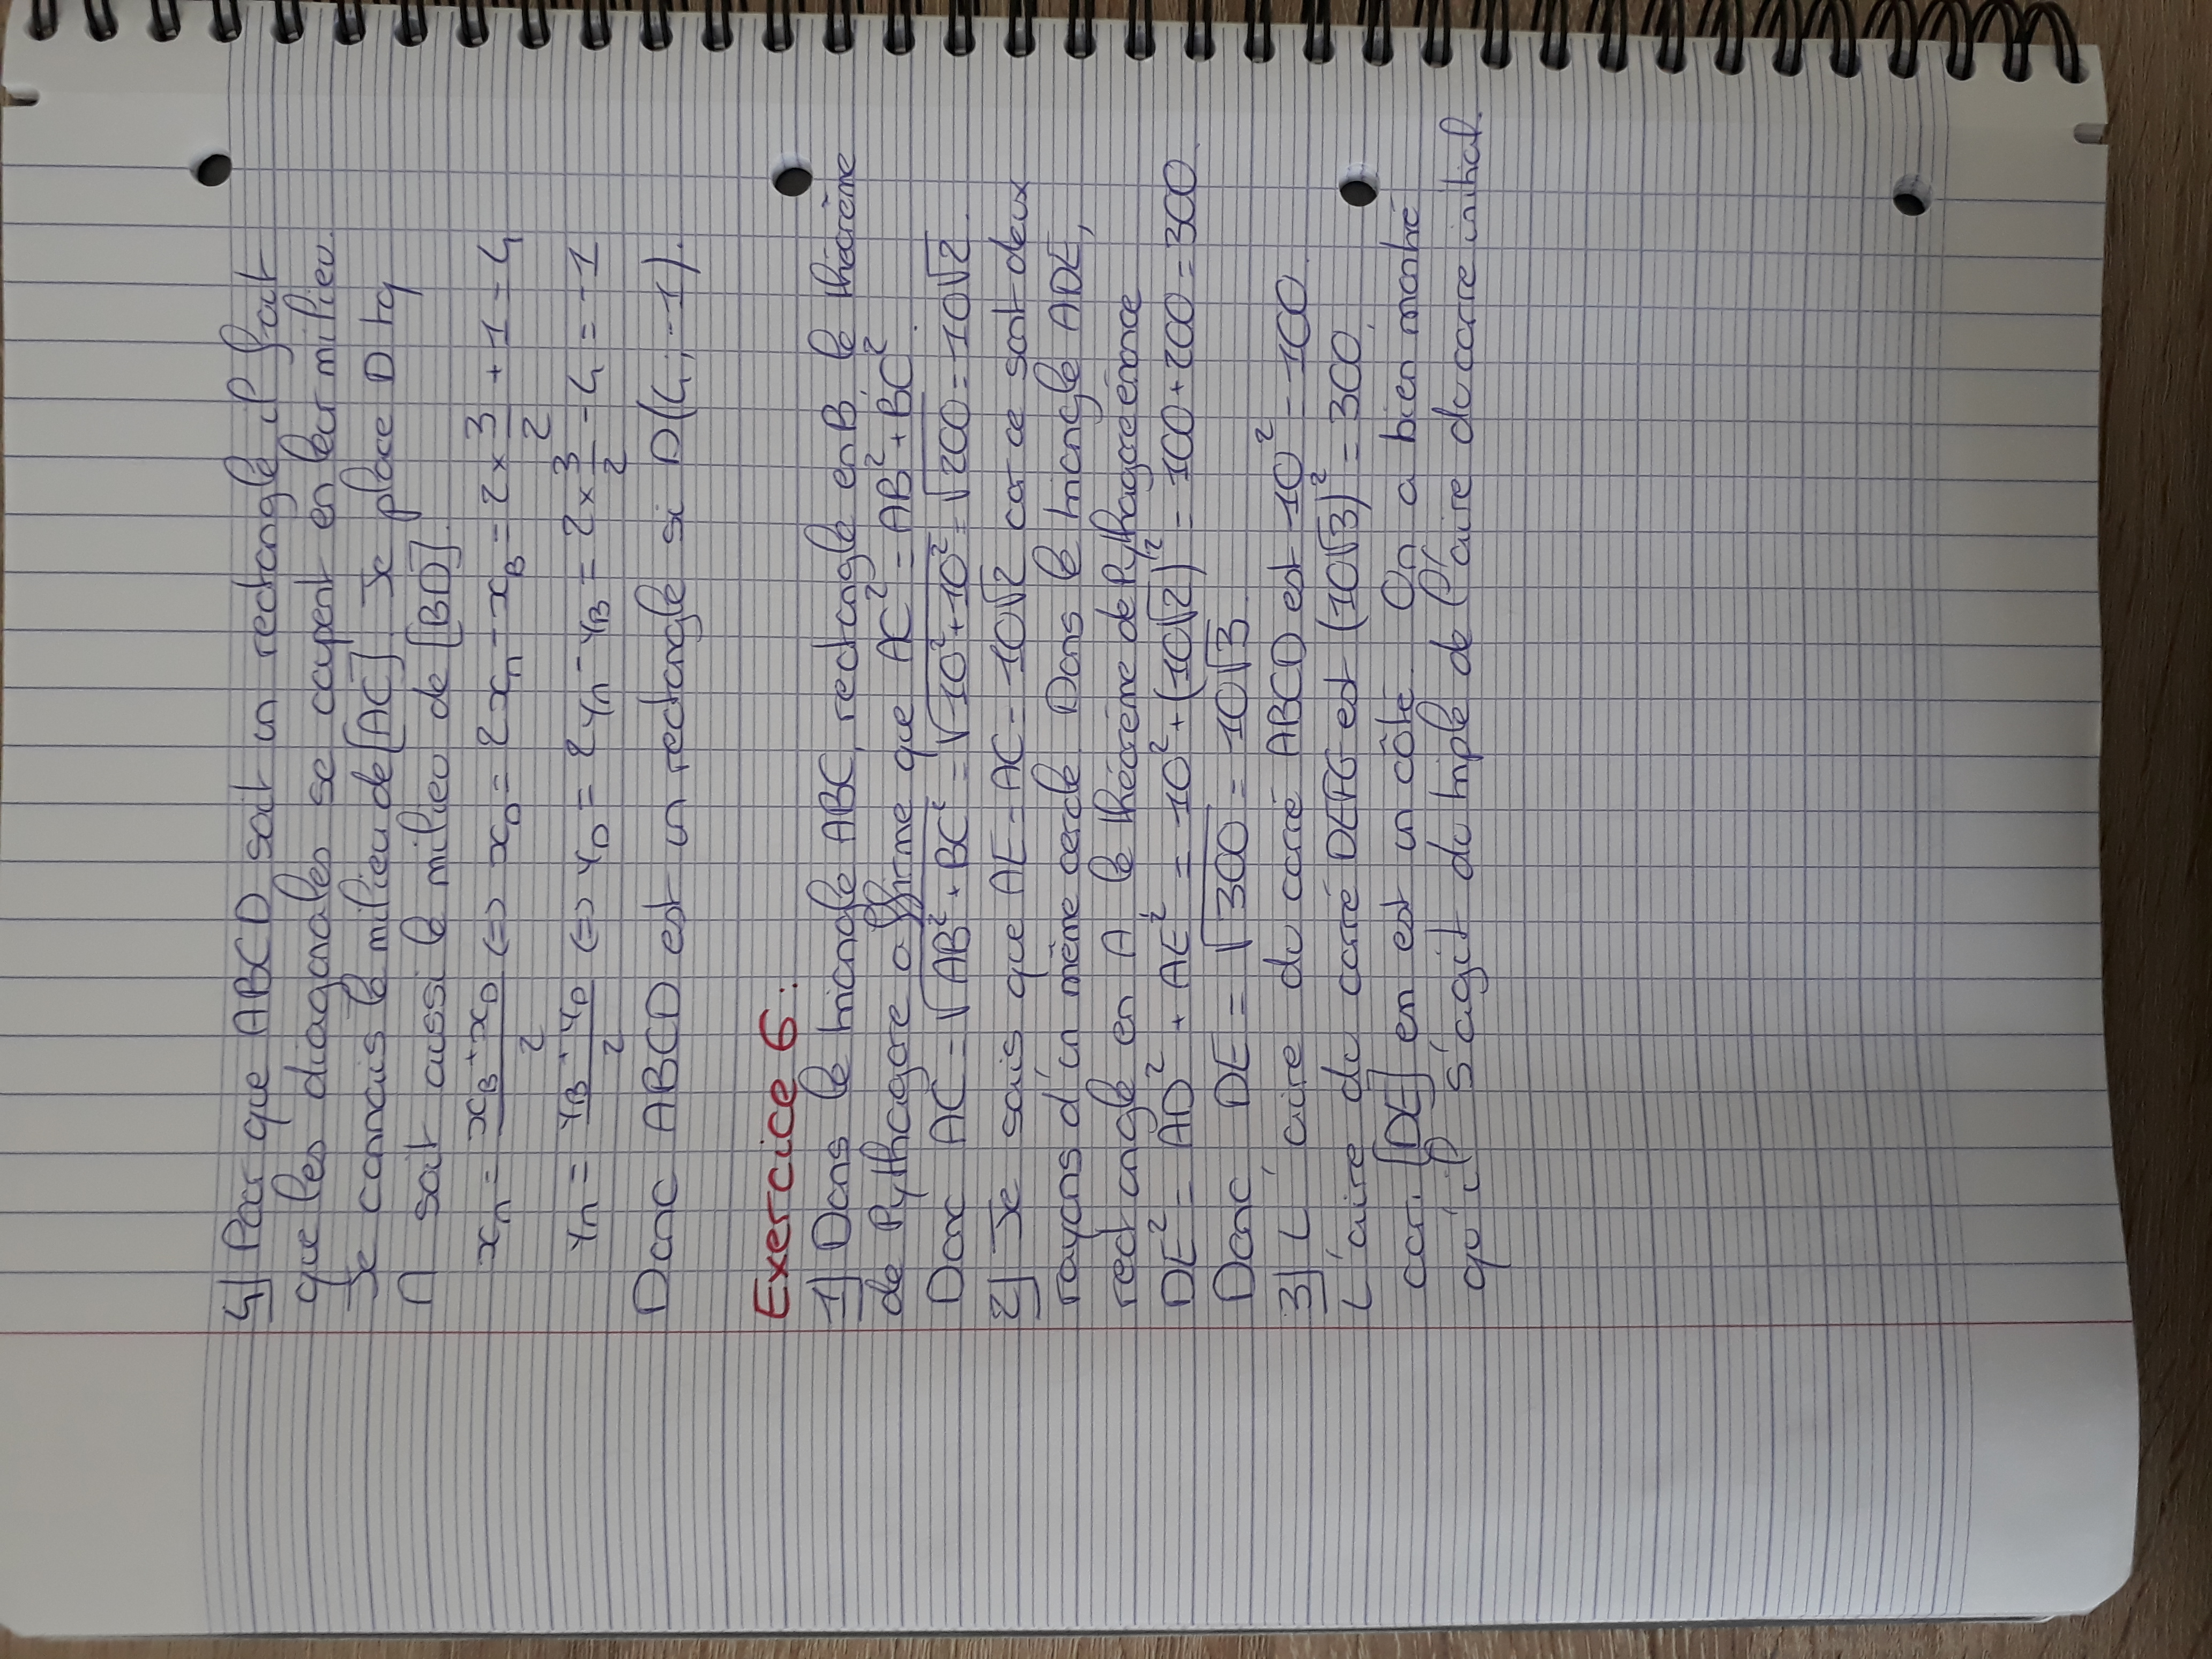 4) Pour que ABCD soit un rectangle il faut
que les diagonales se coupent en leur milieu.
Je connais le milieu de [AC]. Je place D tq
M soit aussi le milieu de [BD].
x_M = (x_B + x_D)/2 <=> x_D = 2x_M - x_B = 2 × 3/2 + 1 = 4
y_M = (y_B + y_D)/2 <=> y_D = 2y_M - y_B = 2 × 3/2 - 4 = -1
Donc ABCD est un rectangle si D(4 ; -1).
Exercice 6 :
1) Dans le triangle ABC, rectangle en B, le théorème
de Pythagore affirme que AC² = AB² + BC².
Donc AC = √(AB² + BC²) = √(10² + 10²) = √200 = 10√2.
2) Je sais que AE = AC = 10√2 car ce sont deux
rayons d'un même cercle. Dans le triangle ADE,
rectangle en A, le théorème de Pythagore énonce
DE² = AD² + AE² = 10² + (10√2)² = 100 + 200 = 300.
Donc DE = √300 = 10√3.
3) L'aire du carré ABCD est 10² = 100.
L'aire du carré DEFG est (10√3)² = 300,
car [DE] en est un côté. On a bien montré
qu'il s'agit du triple de l'aire du carré initial.